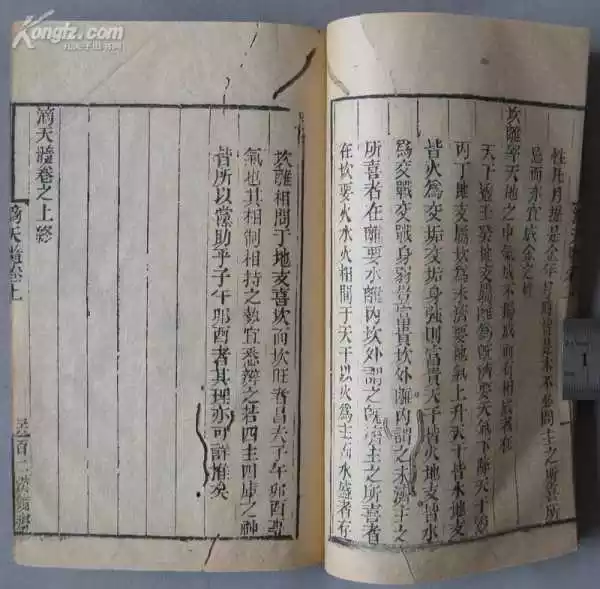 月是金年月時皆是木不必問主之所喜所
忌而亦宜成金之性
坎離宰天地之中氣成不獨成而有相者在
天干透壬癸地支屬離為既濟要天氣下降天干透
丙丁地支屬坎為未濟要地氣上升天干皆水地支
皆火為交垢交垢身強則富貴天干皆火地支皆水
為交戰交戰身弱豈富貴坎外離內謂之未濟主之
所喜者在離要水離內坎外謂之既濟主之所喜者
在坎要火水火相間于天干以火為主而水盛者存
坎離相間于地支喜坎而坎旺者昌夫子午卯酉專
氣也其相制相持之勢宜悉辨之若四生四庫之神
皆所以黨助乎子午卯酉者其理亦可詳推矣
滴天髓卷之上終
滴天髓卷上
百二漢鏡齋
Kongfz.com
孔夫子旧书网
1